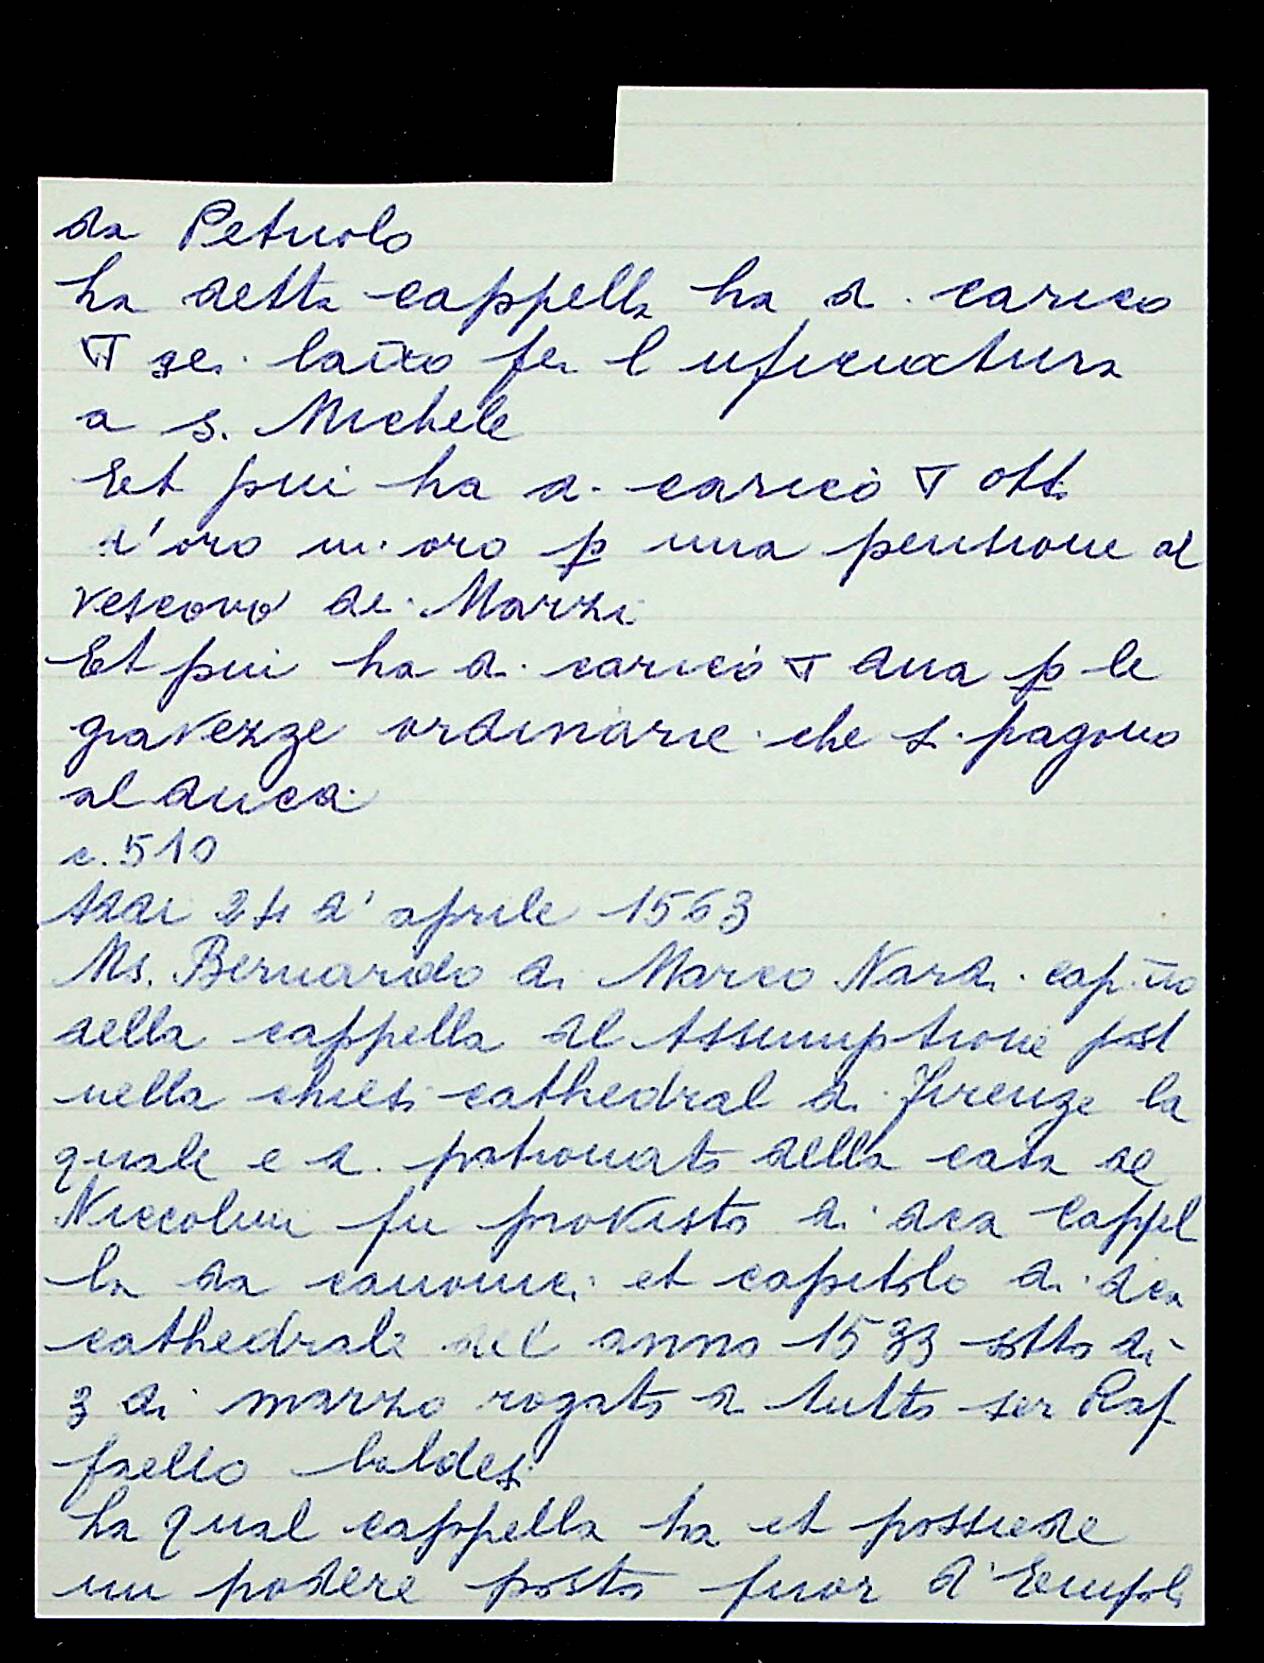 da Petruolo
La detta cappella ha di carico
∇ sei l'anno per l uficiatura
a s. Michele
Et piu ha di carico ∇ otto
d'oro in oro p una pensione al
vescovo de Marzi
Et piu ha di carico ∇ dua p le
gravezze ordinarie che si pagono
al duca
c. 510
Addi 24 d'aprile 1563
Ms. Bernardo di Marco Nardi cap.no
della cappella del Assumptione post
nella chiesa cathedral di Firenze la
quale e di patronato della casa de
Niccolini fu provisto di dca cappel
la da canonici et capitolo di dca
cathedrale del anno 1533 sotto di
3 di marzo rogato di tutto ser Raf
faello baldesi
La qual cappella ha et possiede
un podere posto fuor d'Empoli